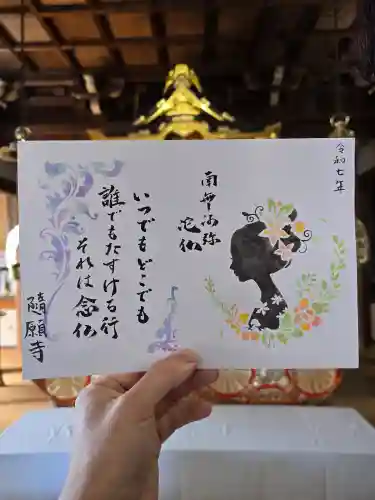 令和七年
南無阿弥
陀仏
いつでもどこでも
誰でもたすける行
それは念仏
隨願寺